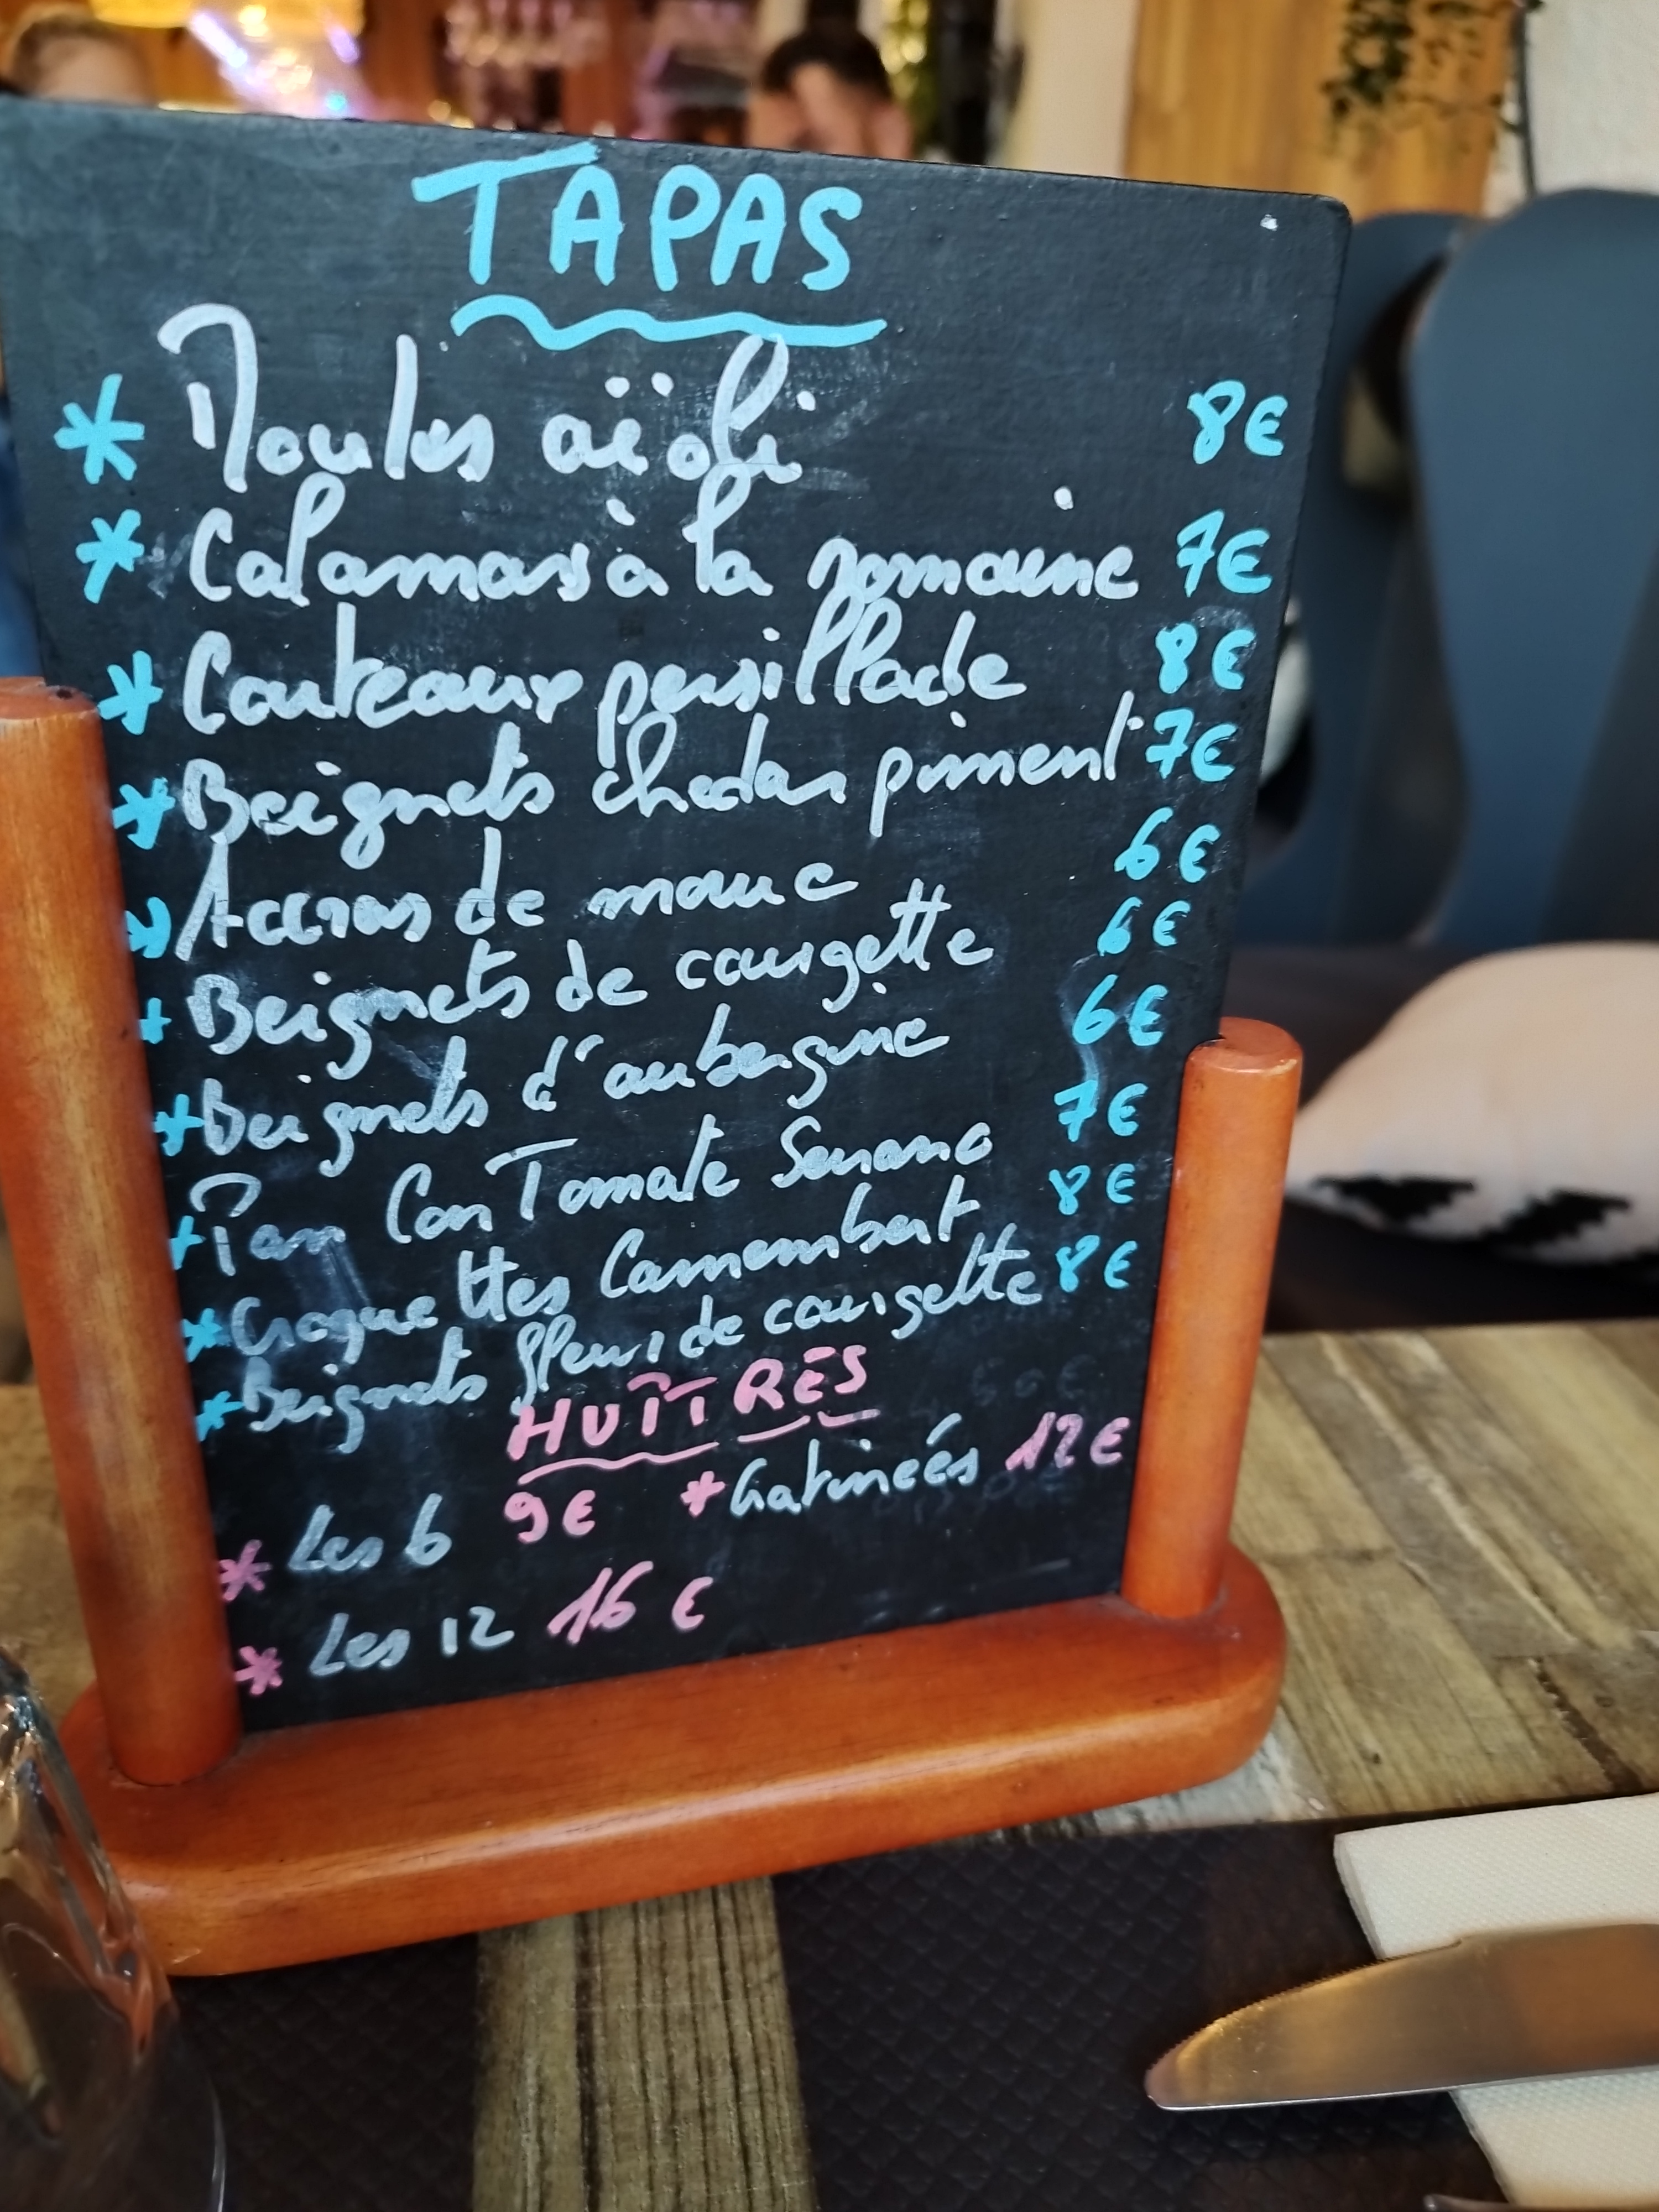 TAPAS
* Moules aïoli 8€
* Calamars à la romaine 7€
* Couteaux persillade 8€
* Beignets chedar piment 7€
* Accras de morue 6€
* Beignets de courgette 6€
* Beignets d'aubergine 6€
* Pan Con Tomate Serrano 7€
* Croquettes Camembert 8€
* Beignets fleurs de courgette 8€
HUÎTRES
* Les 6 9€ * Gratinées 12€
* Les 12 16€